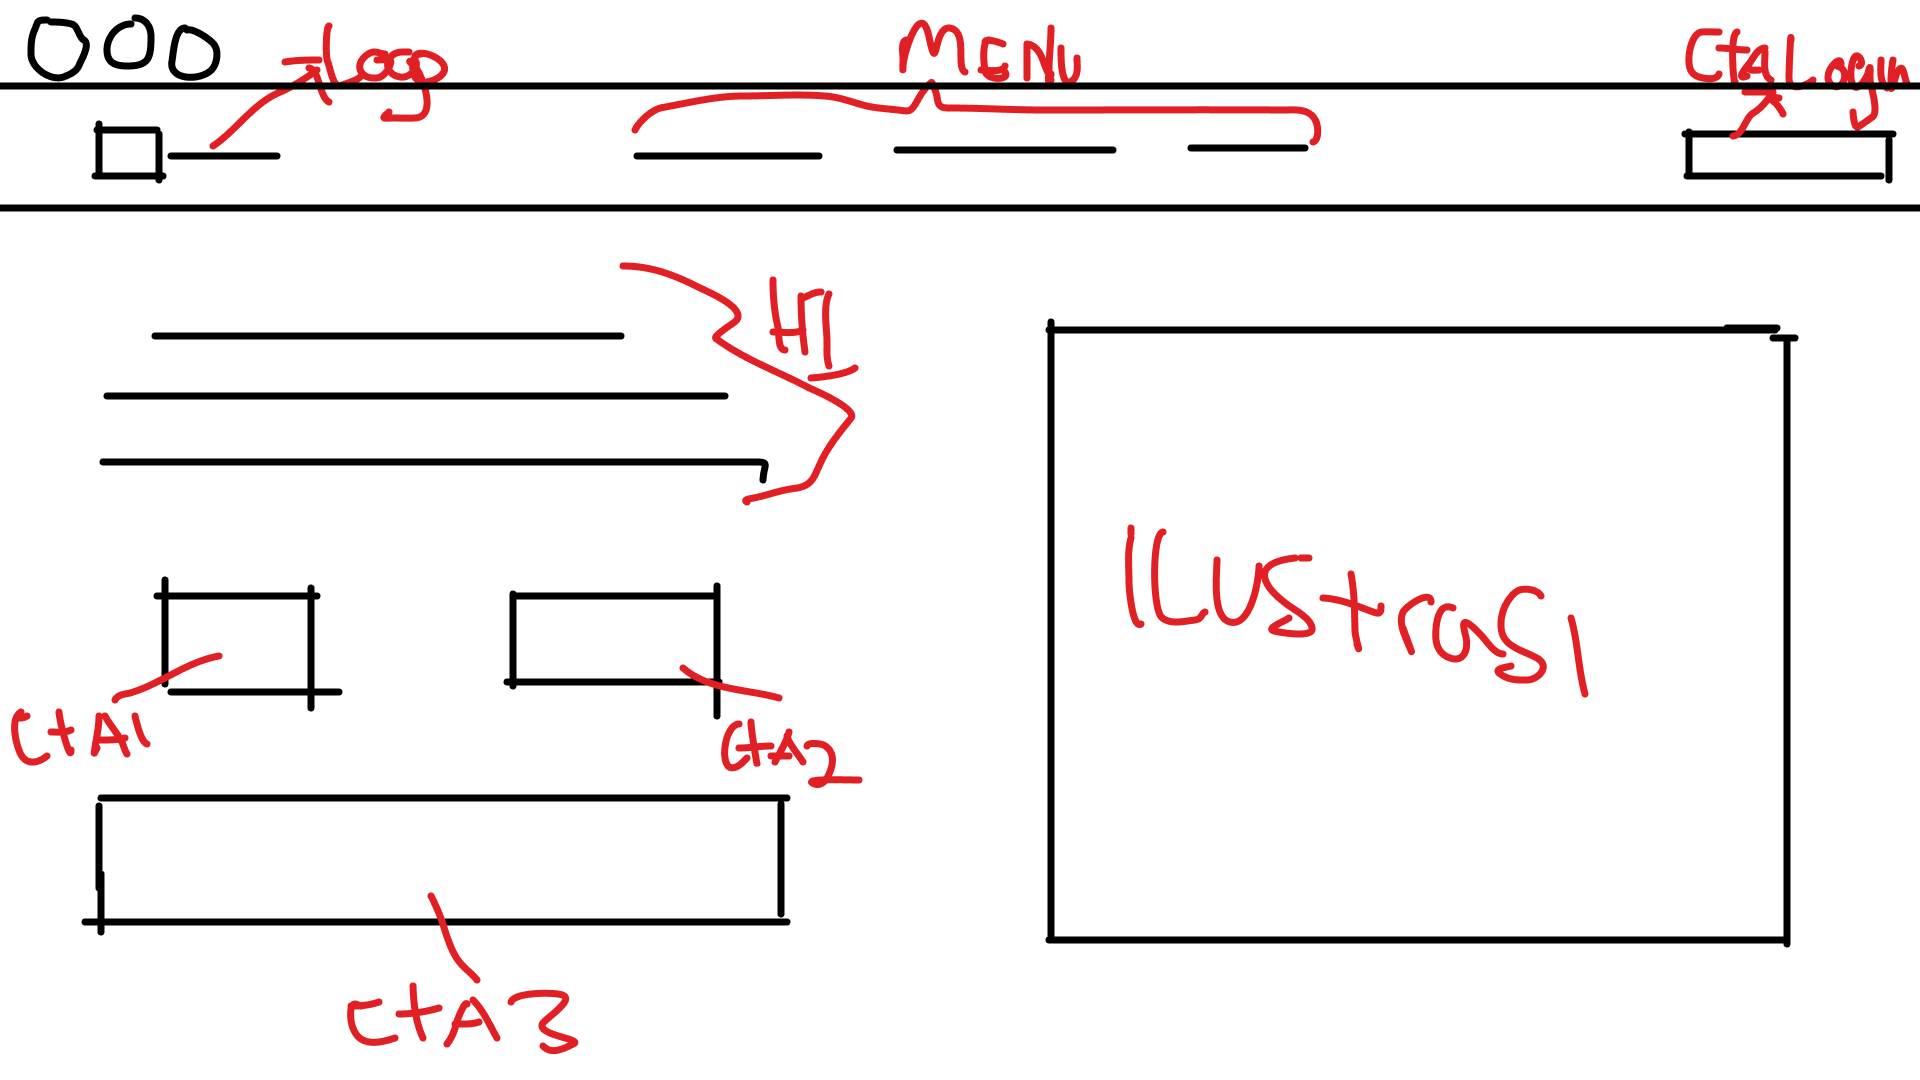 Logo
MENU
CtA Login
H1
ILUStraSI
CtA1
CtA2
CtA3